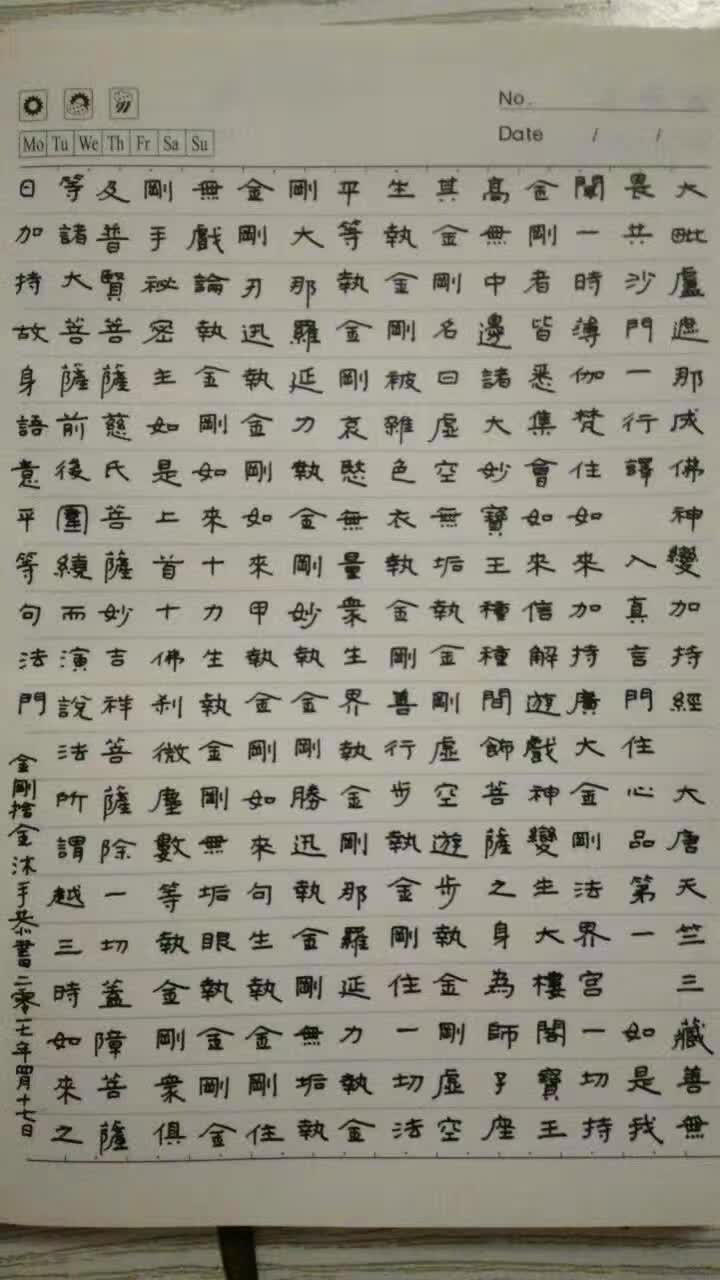 No.
Date / /
Mo Tu We Th Fr Sa Su
大毗盧遮那成佛神變加持經 大唐天竺三藏善無
畏共沙門一行譯 入真言門住心品第一 如是我
聞一時薄伽梵住如來加持廣大金剛法界宮一切持
金剛者皆悉集會如來信解遊戲神變生大樓閣寶王
高無中邊諸大妙寶王種種間飾菩薩之身為師子座
其金剛名曰虛空無垢執金剛虛空遊步執金剛虛空
生執金剛被雜色衣執金剛善行步執金剛住一切法
平等執金剛哀愍無量衆生界執金剛那羅延力執金
剛大那羅延力執金剛妙執金剛勝迅執金剛無垢執
金剛刃迅執金剛如來甲執金剛如來句生執金剛住
無戲論執金剛如來十力生執金剛無垢眼執金剛金
剛手祕密主如是上首十佛剎微塵數等執金剛衆俱
及普賢菩薩慈氏菩薩妙吉祥菩薩除一切蓋障菩薩
等諸大菩薩前後圍繞而演說法所謂越三時如來之
日加持故身語意平等句法門
金剛捨金沐手恭書二零一七年四月十七日